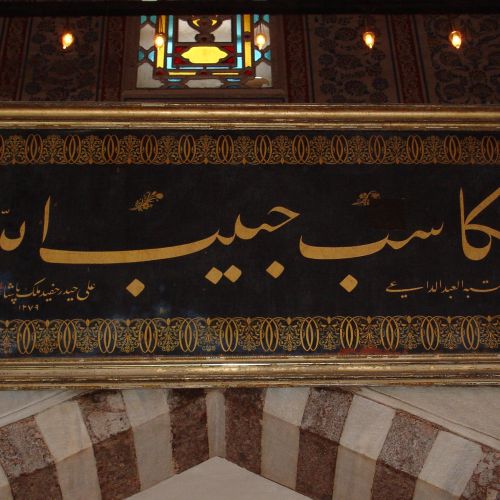 الكاسب حبيب الله
كتبه العبد الداعي
علي حيدر حفيد ملك پاشا
١٢٧٩